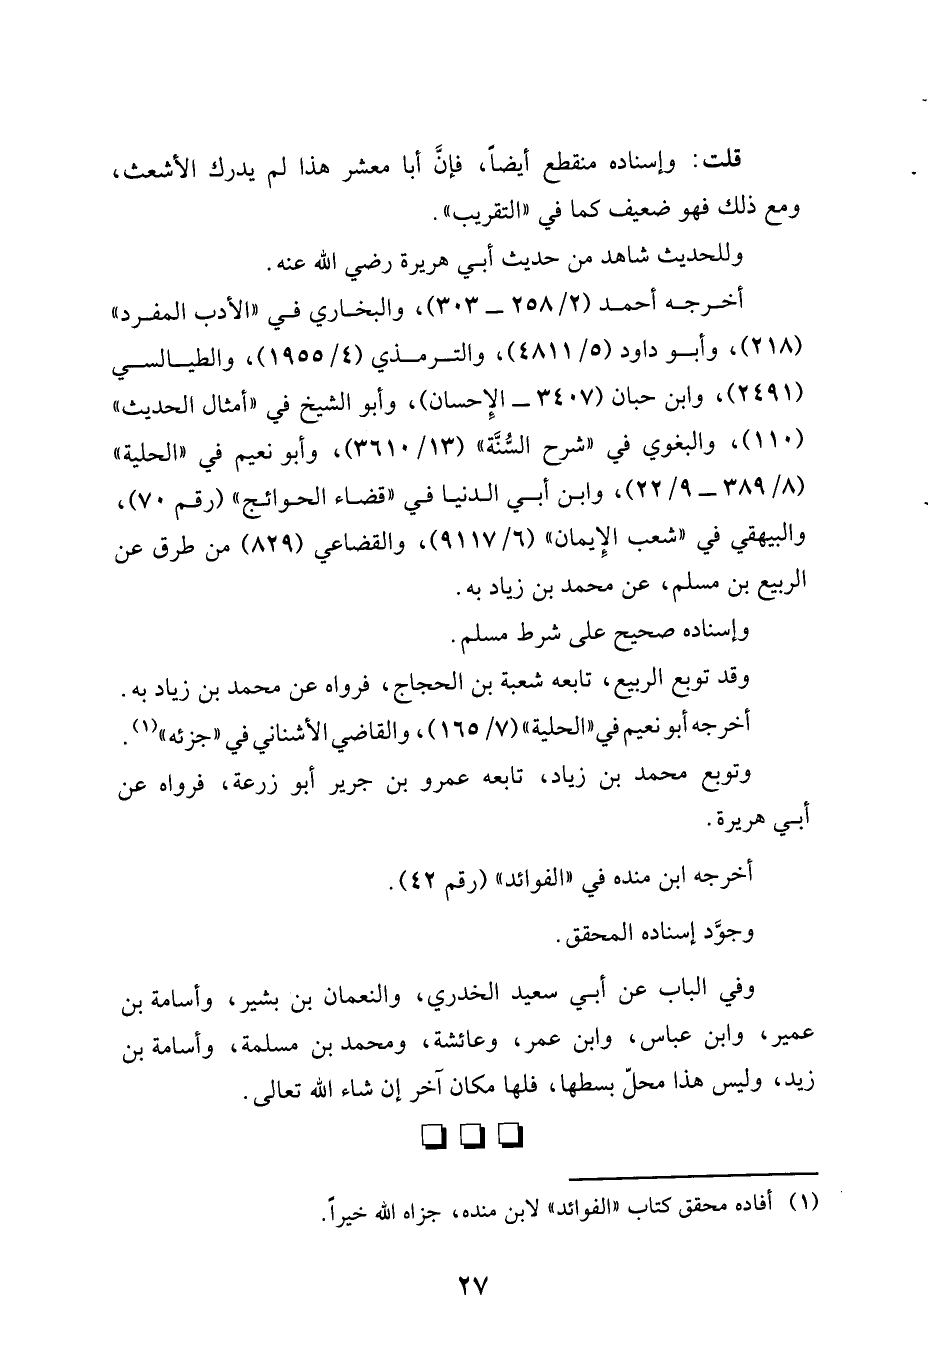 قلت: وإسناده منقطع أيضاً، فإنَّ أبا معشر هذا لم يدرك الأشعث،
ومع ذلك فهو ضعيف كما في «التقريب».
وللحديث شاهد من حديث أبي هريرة رضي الله عنه.
أخرجه أحمد (٢/ ٢٥٨ ــ ٣٠٣)، والبخاري في «الأدب المفرد»
(٢١٨)، وأبو داود (٥/ ٤٨١١)، والترمذي (٤/ ١٩٥٥)، والطيالسي
(٢٤٩١)، وابن حبان (٣٤٠٧ ــ الإحسان)، وأبو الشيخ في «أمثال الحديث»
(١١٠)، والبغوي في «شرح السُّنَّة» (١٣/ ٣٦١٠)، وأبو نعيم في «الحلية»
(٨/ ٣٨٩ ــ ٩/ ٢٢)، وابن أبي الدنيا في «قضاء الحوائج» (رقم ٧٠)،
والبيهقي في «شعب الإيمان» (٦/ ٩١١٧)، والقضاعي (٨٢٩) من طرق عن
الربيع بن مسلم، عن محمد بن زياد به.
وإسناده صحيح على شرط مسلم.
وقد توبع الربيع، تابعه شعبة بن الحجاج، فرواه عن محمد بن زياد به.
أخرجه أبو نعيم في «الحلية» (٧/ ١٦٥)، والقاضي الأشناني في «جزئه»(١).
وتوبع محمد بن زياد، تابعه عمرو بن جرير أبو زرعة، فرواه عن
أبي هريرة.
أخرجه ابن منده في «الفوائد» (رقم ٤٢).
وجوَّد إسناده المحقق.
وفي الباب عن أبي سعيد الخدري، والنعمان بن بشير، وأسامة بن
عمير، وابن عباس، وابن عمر، وعائشة، ومحمد بن مسلمة، وأسامة بن
زيد، وليس هذا محلّ بسطها، فلها مكان آخر إن شاء الله تعالى.
(١) أفاده محقق كتاب «الفوائد» لابن منده، جزاه الله خيراً.
٢٧